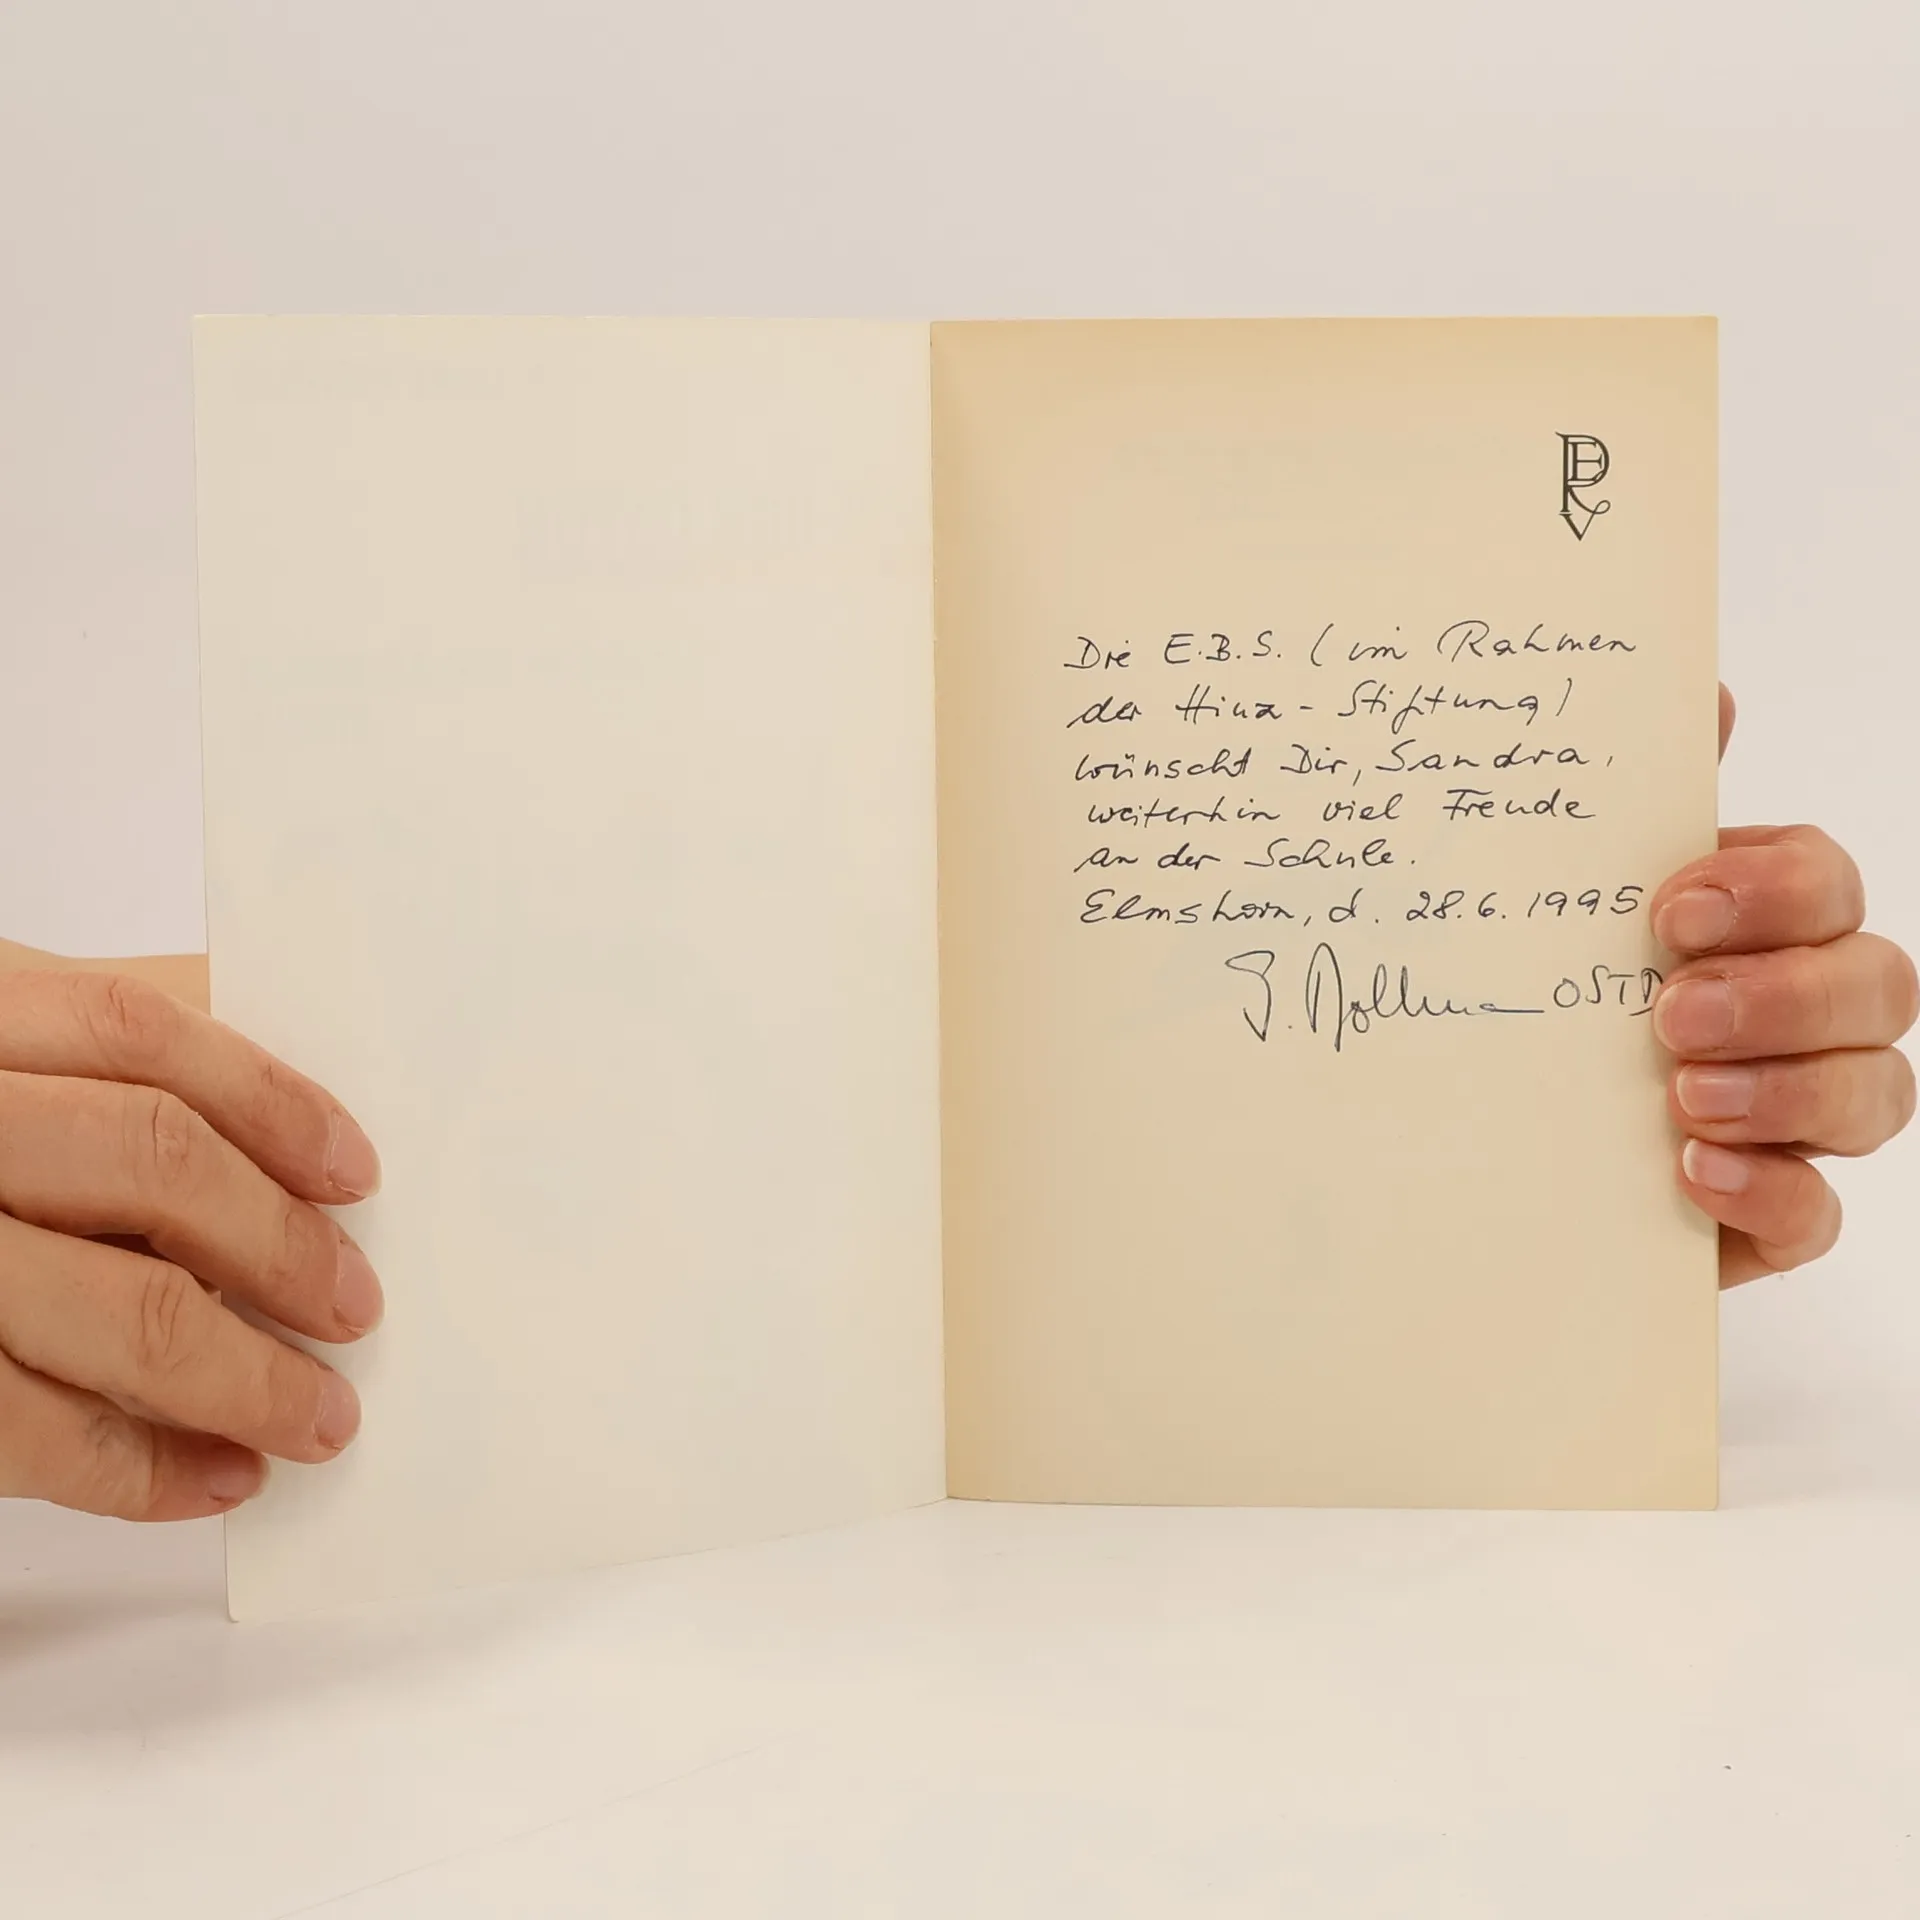 PERV
Die E.B.S. (im Rahmen
der Hinz-Stiftung)
wünscht Dir, Sandra,
weiterhin viel Freude
an der Schule.
Elmshorn, d. 28.6.1995
OSTD